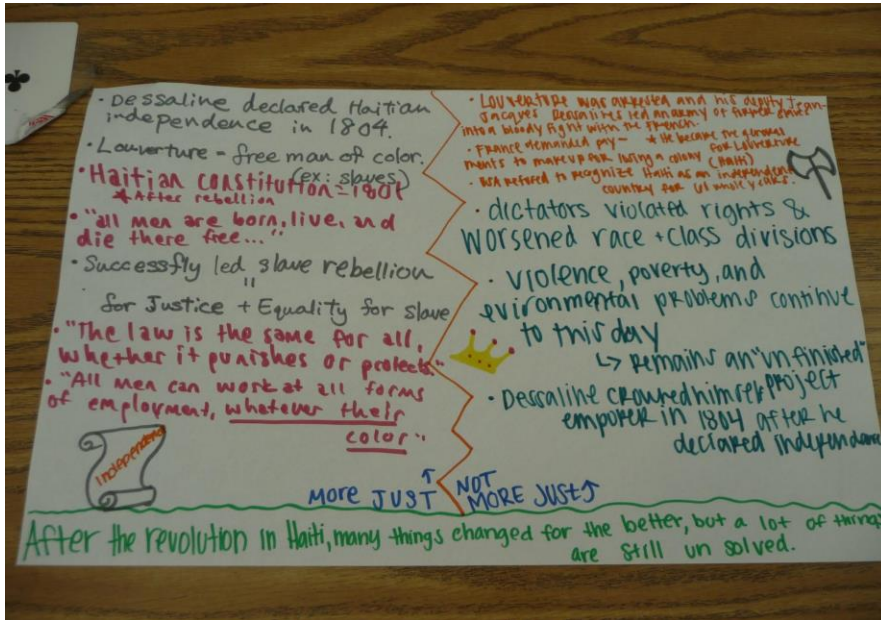 • Dessaline declared Haitian
independence in 1804.
• Louverture - free man of color.
(ex: slaves)
• Haitian constitution = 1801
* After rebellion
• "all men are born, live, and
die there free..."
• Successfly led slave rebellion
"
for Justice + Equality for slave
• "The law is the same for all,
whether it punishes or protects."
• "All men can work at all forms
of employment, whatever their
color"
Independence
More JUST
• Louverture was arrested and his deputy Jean-
Jacques Dessalines led an army of former slaves
into a bloody fight with the French.
• France demanded pay- * He became the general
for Louverture
ments to make up for losing a colony (Haiti)
• USA refused to recognize Haiti as an independent
country for whole years.
• dictators violated rights &
worsened race + class divisions
• violence, poverty, and
evironmental problems continue
to this day
↳ remains an "unfinished"
project
• Dessaline crowned himself
emporer in 1804 after he
declared independance
NOT
MORE JUST
After the revolution in Haiti, many things changed for the better, but a lot of things
are still un solved.